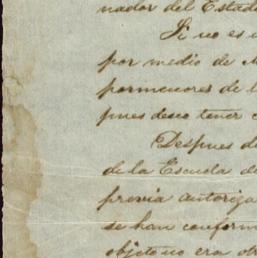 nador del Estado
Si no es i
por medio de
pormenores de l
pues deseo tener
Despues de
de la Escuela de
previa autoriza
se han conform
objeto no era otr